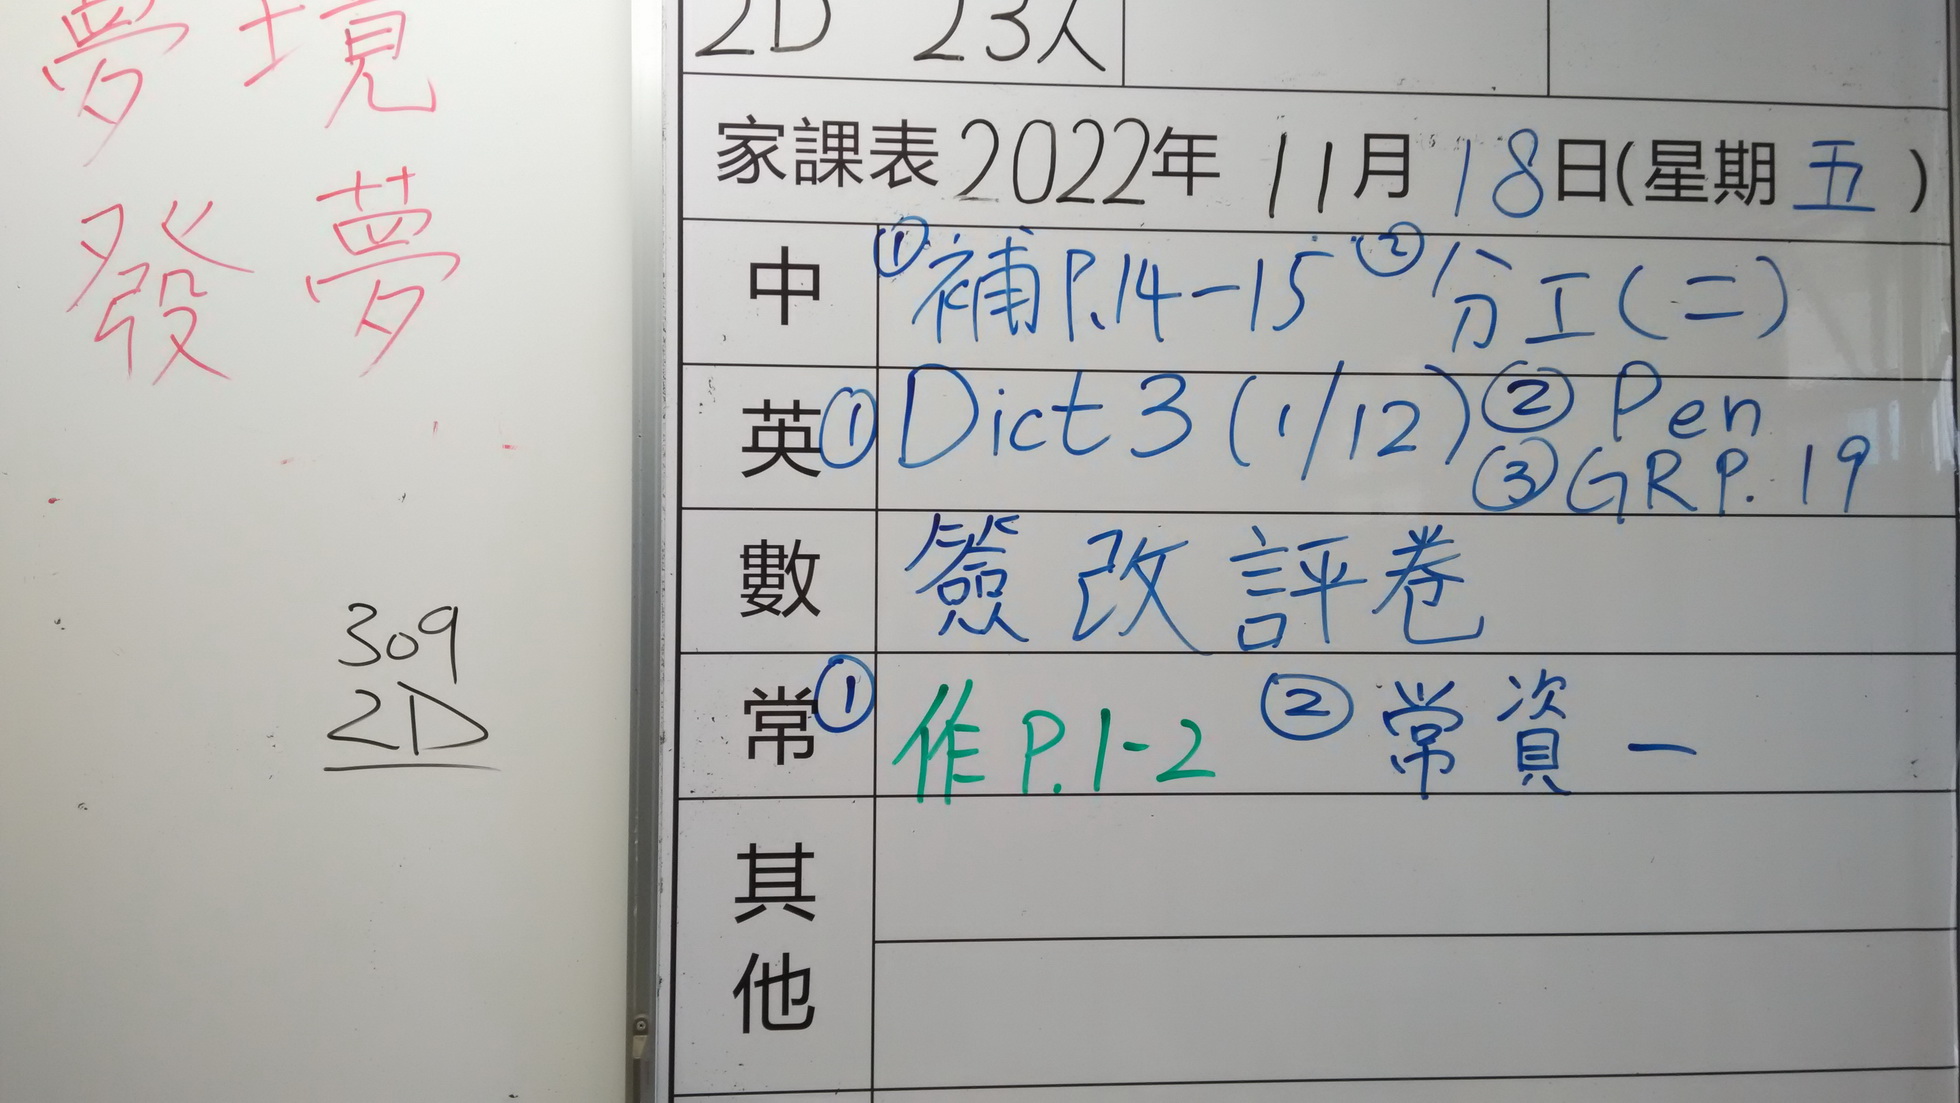 夢境
發夢
309
2D
2D 23人
家課表2022年 11月18日(星期五)
中 ①補P.14-15 ②分工(二)
英 ①Dict 3 (1/12) ②Pen
③GRP.19
數 簽改評卷
常 ①作P.1-2 ②常資一
其他